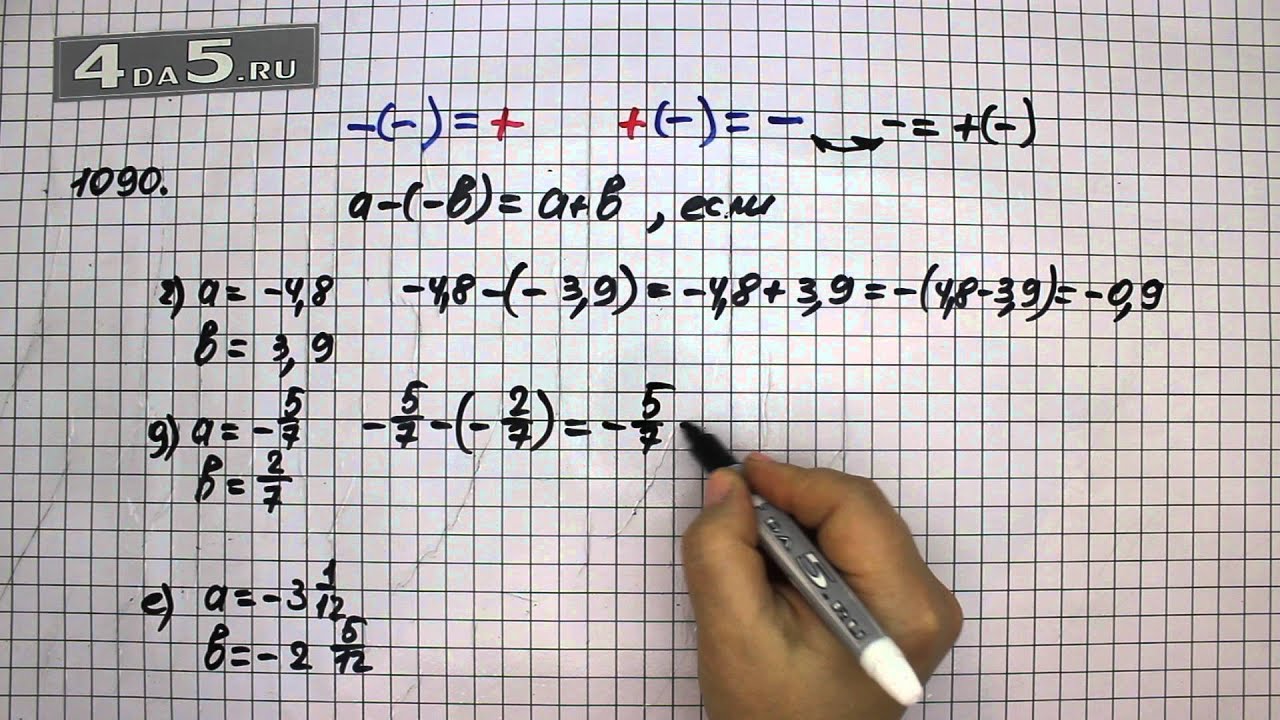 4DA5.RU
-(-) = + +(-) = - - = +(-)
1090.
a-(-в) = a+в , если
г) a = -4,8 -4,8-(-3,9) = -4,8+3,9 = -(4,8-3,9) = -0,9
в = 3,9
g) a = -5/7 -5/7-(-2/7) = -5/7
в = 2/7
е) a = -3 1/12
в = -2 5/12
DA5.RU